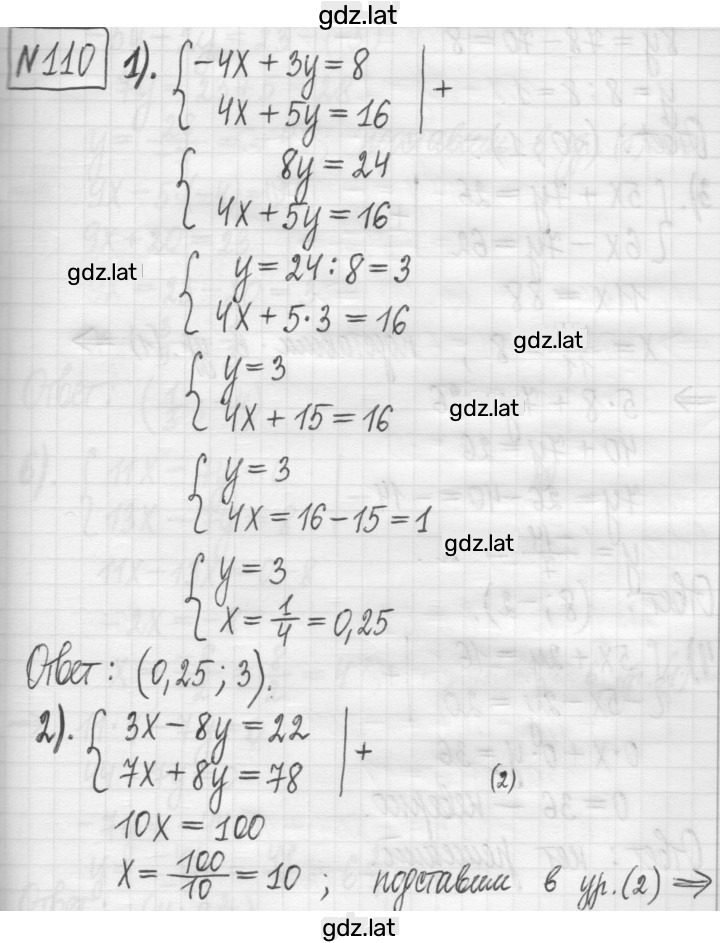 gdz.lat
№110 1). { -4x + 3y = 8 | +
4x + 5y = 16
{ 8y = 24
4x + 5y = 16
gdz.lat { y = 24 : 8 = 3
4x + 5·3 = 16
gdz.lat
{ y = 3
4x + 15 = 16 gdz.lat
{ y = 3
4x = 16 - 15 = 1
gdz.lat
{ y = 3
x = 1/4 = 0,25
Ответ: (0,25; 3).
2). { 3x - 8y = 22 | +
7x + 8y = 78 (2)
10x = 100
x = 100/10 = 10 ; подставим в ур.(2) ⇒
gdz.lat